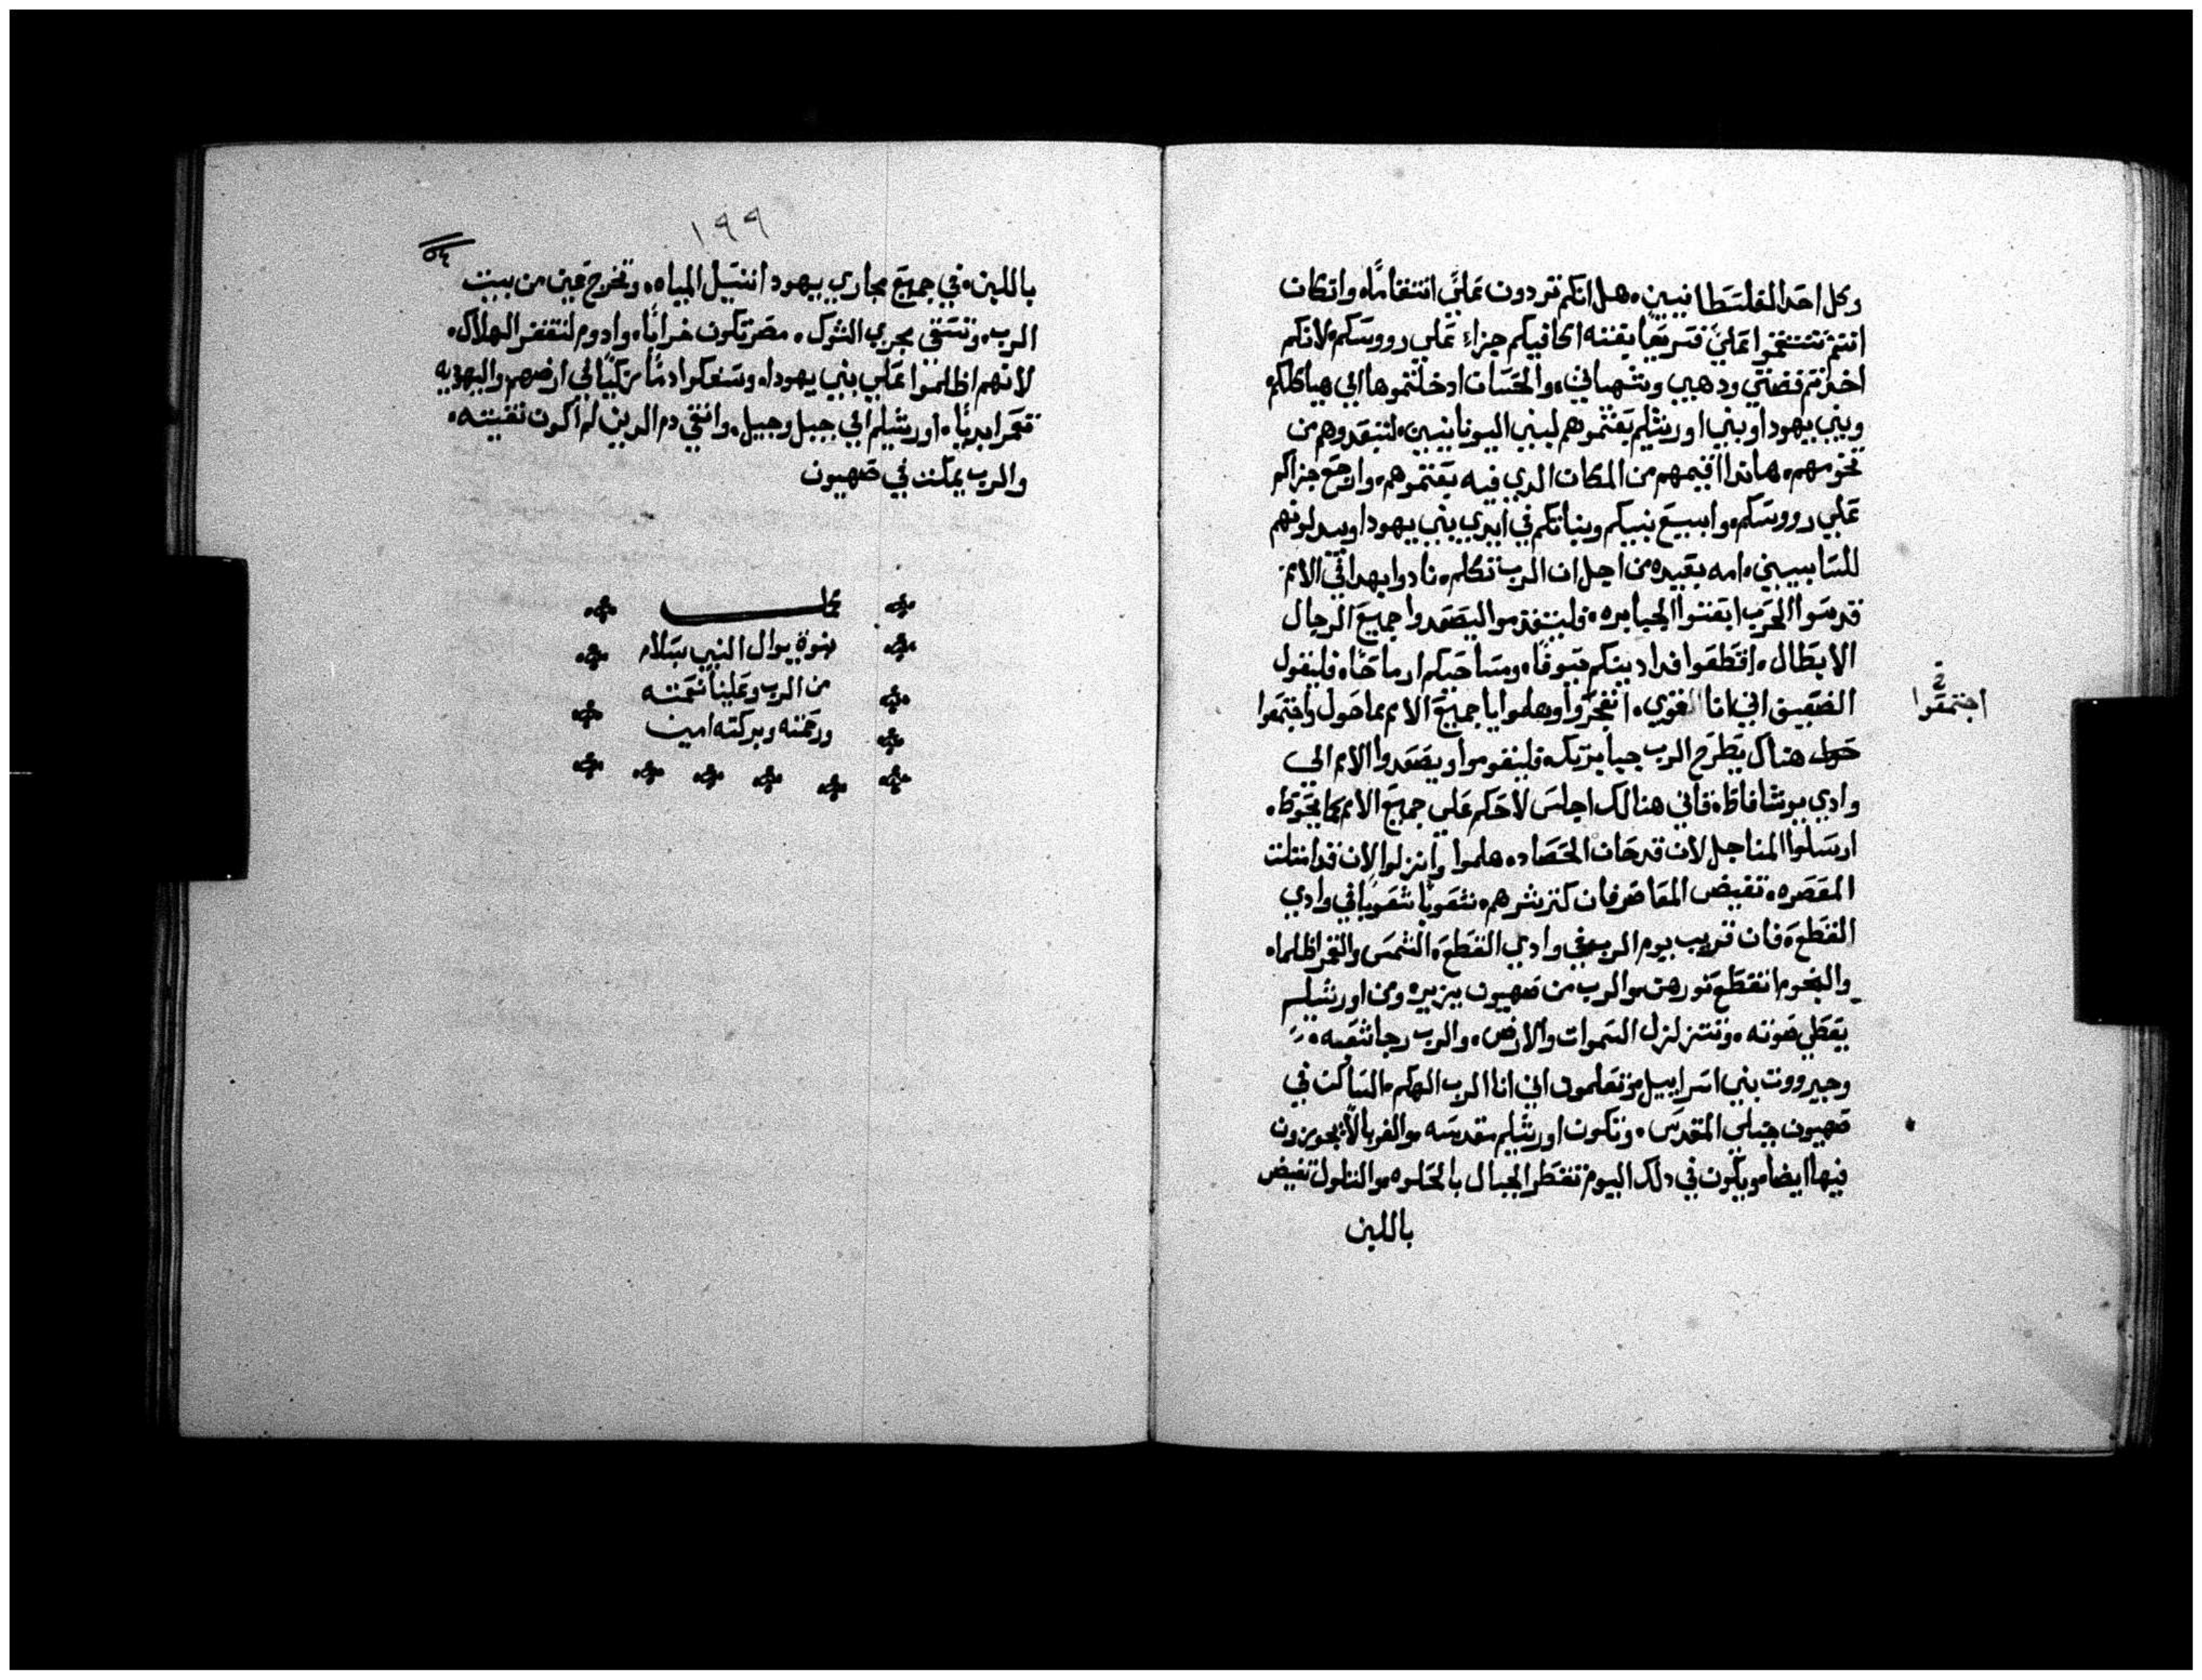 وكل احد الفلسطانيين، هل انكم تردون علي انتقاما، وان كان
انتم تنتقموا علي فسريعا بغته اكافيكم جزاء علي رووسكم، لانكم
اخذتم فضتي ودهبي وشهياتي، والحسان ادخلتموها الي هياكلكم
وبني يهودا وبني اورشليم بعتموهم لبني اليونانيين، لتبعدوهم من
تخومهم، هاندا اقيمهم من المكان الدي فيه بعتموهم، وارجع جزاكم
علي رووسكم، وابيع بنيكم وبناتكم في ايدي بني يهودا ويبدلونهم
للسابيين، امه بعيده من اجل ان الرب تكلم، نادوا بهدا في الامم
قدسوا الحرب ابعثوا الجبابره، فليتقدموا ليصعدوا جميع الرجال
الابطال، اقطعوا فدادينكم سيوفا، ومساحيكم ارماحا، فليقول
الضعيف اني انا القوي، انفجروا وهلموا يا جميع الامم مما حول واجتمعوا
اجتمعوا
هناك يطرح الرب جبابرتك، فليقوموا ويصعدوا الامم الي
وادي يوشافاط، فاني هنالك اجلس لاحكم علي جميع الامم بما يحوط،
ارسلوا المناجل لان قد حان الحصاد، هلموا وانزلوا لان قد امتلت
المعصره، تفيض المعاصر فان كتر شرهم، شعوبا شعوبا في وادي
القطع، فان قريب يوم الرب في وادي القطع، الشمس والقمر اظلما،
والنجوم انقطع نورهن، والرب من صهيون يزير، ومن اورشليم
يعطي صوته، وتتزلزل السموات والارض، والرب رجا شعبه،
وجبرووت بني اسراييل، وتعلمون اني انا الرب الهكم، الساكن في
صهيون جبلي المقدس، وتكون اورشليم مقدسه، والغربا لا يجوزون
فيها ايضا، ويكون في دلك اليوم تقطر الجبال بالحلاوه، والتلول تفيض
باللبن
١٩٩
باللبن، في جميع مجاري يهودا انتيل المياه، وتخرج عين من بيت
الرب، وتسقي مجري الشوك، مصر تكون خرابا، وادوم لتقفر الهلاك،
لانهم اظلموا علي بني يهودا، وسفكوا دما زكيا في ارضهم، واليهوديه
تعمر ابديا، اورشليم الي جيل وجيل، وانقي دم الدين لم اكون نقيته،
والرب يملن في صهيون
كملت
نبوة يوال النبي بسلام
من الرب وعلينا نعمته
ورحمته وبركته امين